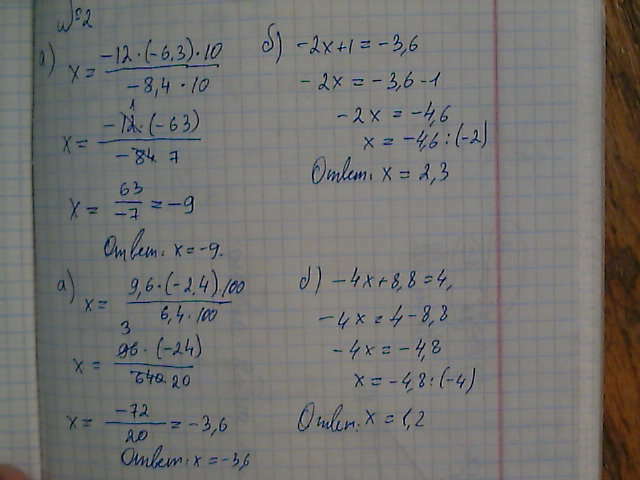 №2
а) x = -12·(-6,3)·10 / -8,4·10
x = -12·(-63) / -84 7
1
x = 63 / -7 = -9
Ответ: x = -9.
б) -2x+1 = -3,6
-2x = -3,6-1
-2x = -4,6
x = -4,6:(-2)
Ответ: x = 2,3
а) x = 9,6·(-2,4)·100 / 6,4·100
3
x = 96·(-24) / 640 20
x = -72 / 20 = -3,6
Ответ: x = -3,6
б) -4x+8,8 = 4,
-4x = 4-8,8
-4x = -4,8
x = -4,8:(-4)
Ответ: x = 1,2